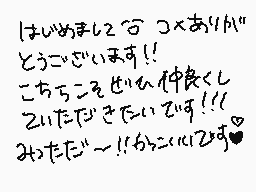 はじめまして コメありが
とうございます!!
こちらこそぜひ仲良くし
ていただきたいです!!!
みつただ〜!!かっこいいです♡♥